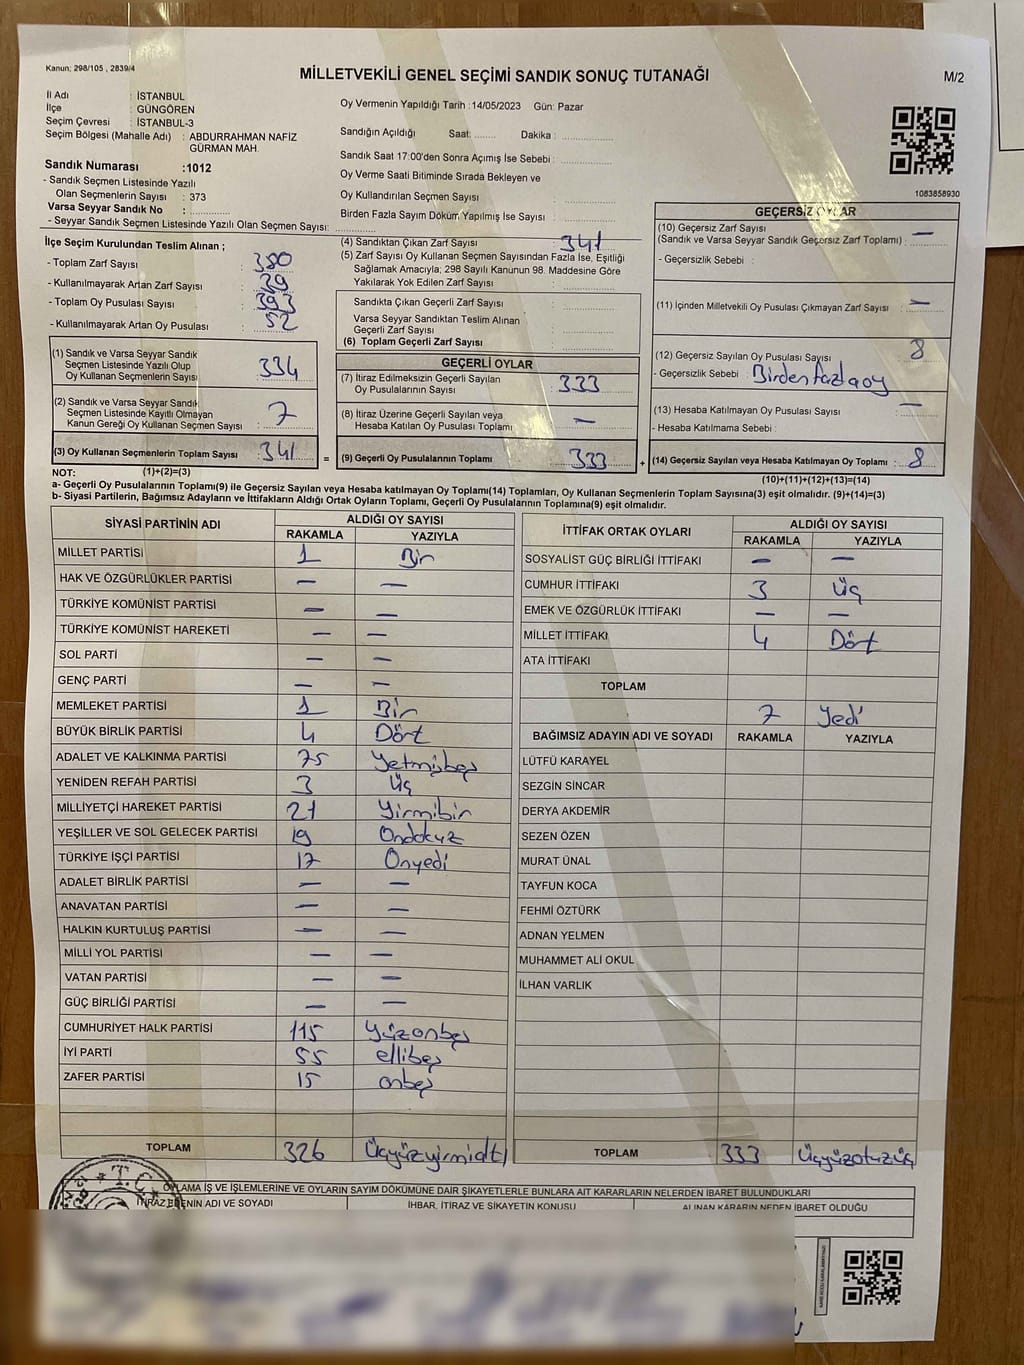 Kanun; 298/105 , 2839/4
MİLLETVEKİLİ GENEL SEÇİMİ SANDIK SONUÇ TUTANAĞI
M/2
İl Adı : İSTANBUL
İlçe : GÜNGÖREN
Seçim Çevresi : İSTANBUL-3
Seçim Bölgesi (Mahalle Adı) : ABDURRAHMAN NAFİZ
GÜRMAN MAH.
Sandık Numarası :1012
- Sandık Seçmen Listesinde Yazılı
Olan Seçmenlerin Sayısı : 373
Varsa Seyyar Sandık No : ............
- Seyyar Sandık Seçmen Listesinde Yazılı Olan Seçmen Sayısı: ............
Oy Vermenin Yapıldığı Tarih :14/05/2023 Gün: Pazar
Sandığın Açıldığı Saat: ....... Dakika : ............
Sandık Saat 17:00'den Sonra Açımış İse Sebebi : ............
Oy Verme Saati Bitiminde Sırada Bekleyen ve
Oy Kullandırılan Seçmen Sayısı : ............
Birden Fazla Sayım Döküm Yapılmış İse Sayısı : ............
1083858930
İlçe Seçim Kurulundan Teslim Alınan ;
- Toplam Zarf Sayısı : 380
- Kullanılmayarak Artan Zarf Sayısı : 39
- Toplam Oy Pusulası Sayısı : 393
- Kullanılmayarak Artan Oy Pusulası : 52
(1) Sandık ve Varsa Seyyar Sandık
Seçmen Listesinde Yazılı Olup
Oy Kullanan Seçmenlerin Sayısı : 334
(2) Sandık ve Varsa Seyyar Sandık
Seçmen Listesinde Kayıtlı Olmayan
Kanun Gereği Oy Kullanan Seçmen Sayısı : 7
(3) Oy Kullanan Seçmenlerin Toplam Sayısı : 341
(4) Sandıktan Çıkan Zarf Sayısı : 341
(5) Zarf Sayısı Oy Kullanan Seçmen Sayısından Fazla İse, Eşitliği
Sağlamak Amacıyla; 298 Sayılı Kanunun 98. Maddesine Göre
Yakılarak Yok Edilen Zarf Sayısı :
Sandıkta Çıkan Geçerli Zarf Sayısı :
Varsa Seyyar Sandıktan Teslim Alınan
Geçerli Zarf Sayısı :
(6) Toplam Geçerli Zarf Sayısı :
GEÇERLİ OYLAR
(7) İtiraz Edilmeksizin Geçerli Sayılan
Oy Pusulalarının Sayısı : 333
(8) İtiraz Üzerine Geçerli Sayılan veya
Hesaba Katılan Oy Pusulası Toplamı : —
= (9) Geçerli Oy Pusulalarının Toplamı : 333 +
GEÇERSİZ OYLAR
(10) Geçersiz Zarf Sayısı
(Sandık ve Varsa Seyyar Sandık Geçersiz Zarf Toplamı) : —
- Geçersizlik Sebebi :
(11) İçinden Milletvekili Oy Pusulası Çıkmayan Zarf Sayısı : —
(12) Geçersiz Sayılan Oy Pusulası Sayısı : 8
- Geçersizlik Sebebi : Birden fazla oy
(13) Hesaba Katılmayan Oy Pusulası Sayısı : —
- Hesaba Katılmama Sebebi :
(14) Geçersiz Sayılan veya Hesaba Katılmayan Oy Toplamı : 8
NOT: (1)+(2)=(3) (10)+(11)+(12)+(13)=(14)
a- Geçerli Oy Pusulalarının Toplamı(9) ile Geçersiz Sayılan veya Hesaba katılmayan Oy Toplamı(14) Toplamları, Oy Kullanan Seçmenlerin Toplam Sayısına(3) eşit olmalıdır. (9)+(14)=(3)
b- Siyasi Partilerin, Bağımsız Adayların ve İttifakların Aldığı Ortak Oyların Toplamı, Geçerli Oy Pusulalarının Toplamına(9) eşit olmalıdır.
SİYASİ PARTİNİN ADI ALDIĞI OY SAYISI
RAKAMLA YAZIYLA
MİLLET PARTİSİ 1 Bir
HAK VE ÖZGÜRLÜKLER PARTİSİ — —
TÜRKİYE KOMÜNİST PARTİSİ — —
TÜRKİYE KOMÜNİST HAREKETİ — —
SOL PARTİ — —
GENÇ PARTİ — —
MEMLEKET PARTİSİ 1 Bir
BÜYÜK BİRLİK PARTİSİ 4 Dört
ADALET VE KALKINMA PARTİSİ 75 Yetmişbeş
YENİDEN REFAH PARTİSİ 3 Üç
MİLLİYETÇİ HAREKET PARTİSİ 21 Yirmibir
YEŞİLLER VE SOL GELECEK PARTİSİ 19 Ondokuz
TÜRKİYE İŞÇİ PARTİSİ 17 Onyedi
ADALET BİRLİK PARTİSİ — —
ANAVATAN PARTİSİ — —
HALKIN KURTULUŞ PARTİSİ — —
MİLLİ YOL PARTİSİ — —
VATAN PARTİSİ — —
GÜÇ BİRLİĞİ PARTİSİ — —
CUMHURİYET HALK PARTİSİ 115 Yüzonbeş
İYİ PARTİ 55 ellibeş
ZAFER PARTİSİ 15 onbeş
TOPLAM 326 Üçyüzyirmialtı
İTTİFAK ORTAK OYLARI ALDIĞI OY SAYISI
RAKAMLA YAZIYLA
SOSYALİST GÜÇ BİRLİĞİ İTTİFAKI — —
CUMHUR İTTİFAKI 3 Üç
EMEK VE ÖZGÜRLÜK İTTİFAKI — —
MİLLET İTTİFAKI 4 Dört
ATA İTTİFAKI
TOPLAM 7 Yedi
BAĞIMSIZ ADAYIN ADI VE SOYADI RAKAMLA YAZIYLA
LÜTFÜ KARAYEL
SEZGİN SİNCAR
DERYA AKDEMİR
SEZEN ÖZEN
MURAT ÜNAL
TAYFUN KOCA
FEHMİ ÖZTÜRK
ADNAN YELMEN
MUHAMMET ALİ OKUL
İLHAN VARLIK
TOPLAM 333 Üçyüzotuzüç
T.C.
OYLAMA İŞ VE İŞLEMLERİNE VE OYLARIN SAYIM DÖKÜMÜNE DAİR ŞİKAYETLERLE BUNLARA AİT KARARLARIN NELERDEN İBARET BULUNDUKLARI
İTİRAZ EDENİN ADI VE SOYADI İHBAR, İTİRAZ VE ŞİKAYETİN KONUSU ALINAN KARARIN NEDEN İBARET OLDUĞU